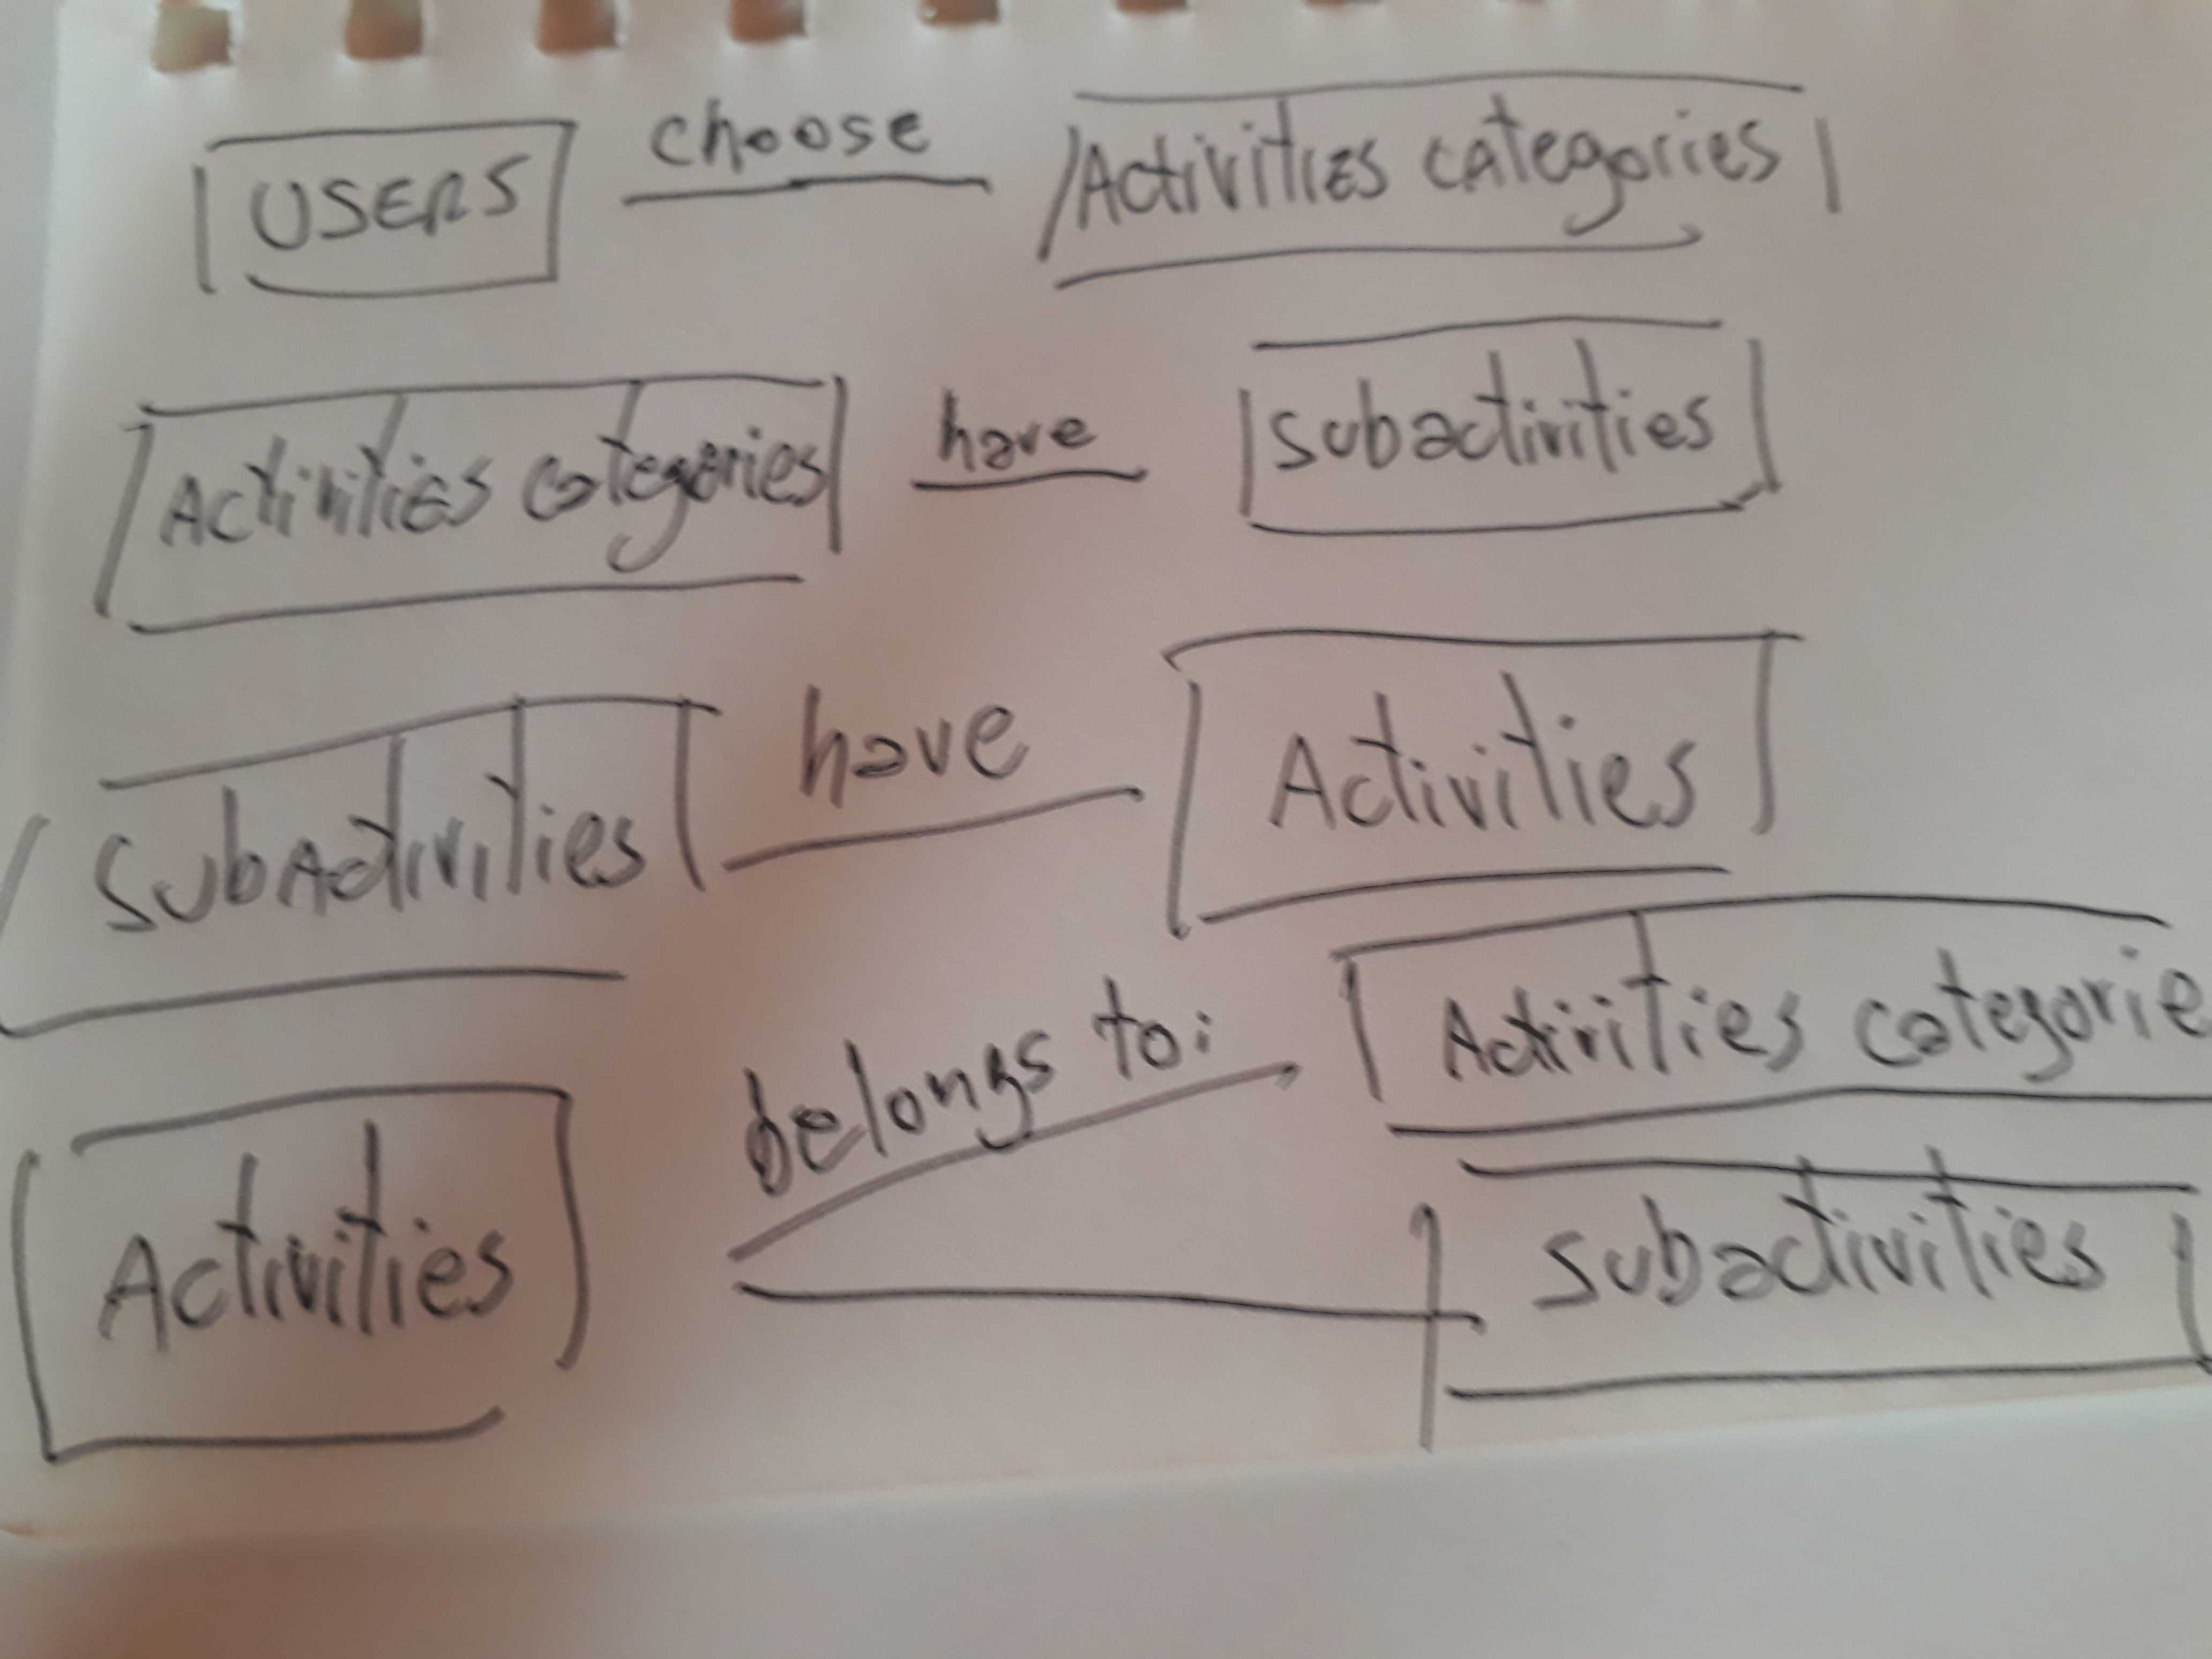 USERS choose Activities categories
Activities categories have subactivities
SubActivities have Activities
belongs to: Activities categorie
Activities subactivities